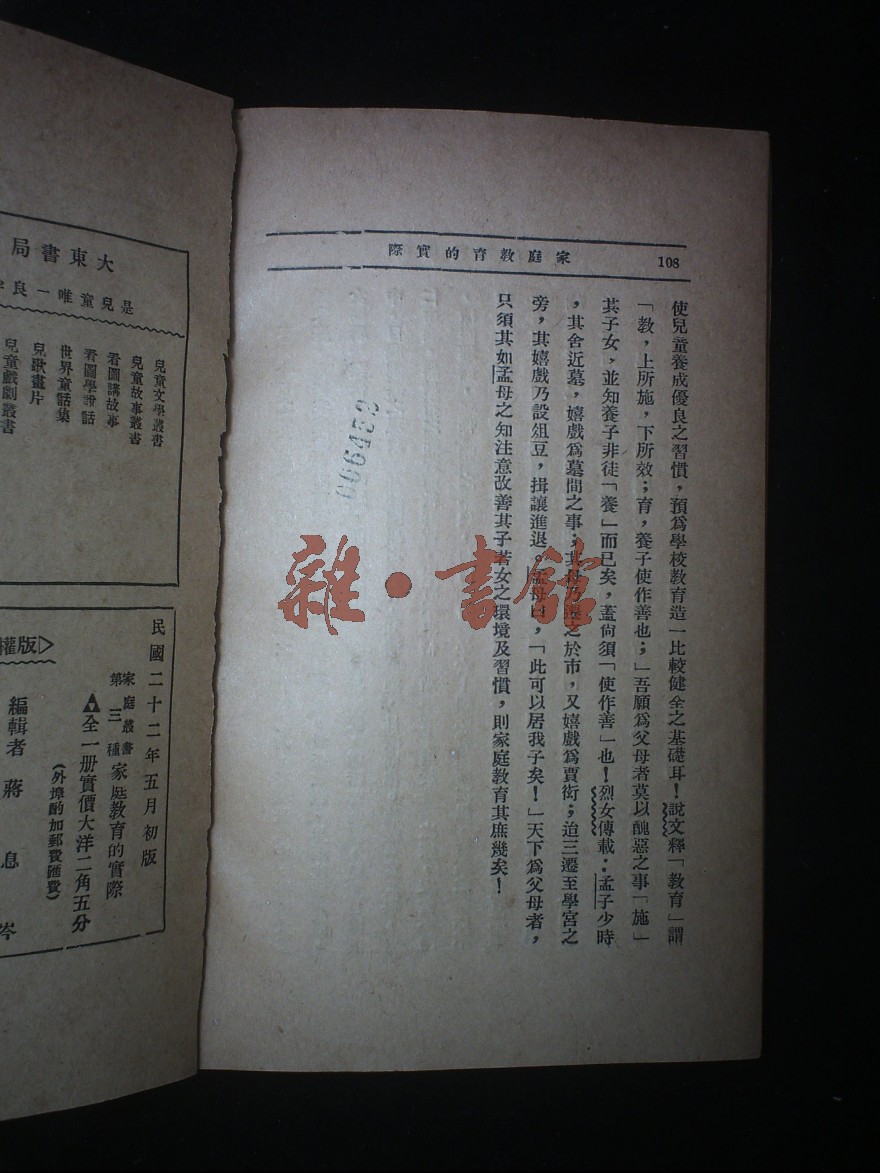 108
家庭教育的實際
使兒童養成優良之習慣，預爲學校教育造一比較健全之基礎耳！說文釋「教育」謂
「教，上所施，下所效；育，養子使作善也；」吾願爲父母者莫以醜惡之事「施」
其子女，並知養子非徒「養」而已矣，蓋尙須「使作善」也！烈女傳載：孟子少時
，其舍近墓，嬉戲爲墓間之事；其母乃遷之於市，又嬉戲爲賈衒；迨三遷至學宮之
旁，其嬉戲乃設俎豆，揖讓進退。孟母曰，「此可以居我子矣！」天下爲父母者，
只須其如孟母之知注意改善其子若女之環境及習慣，則家庭教育其庶幾矣！
006433
雜·書館
大東書局
是兒童唯一良
兒童文學叢書
兒童故事叢書
看圖講故事
看圖學說話
世界童話集
兒歌畫片
兒童戲劇叢書
民國二十二年五月初版
家庭叢書第三種
家庭教育的實際
全一册實價大洋二角五分
(外埠酌加郵費匯費)
版權
編輯者 蔣息岑